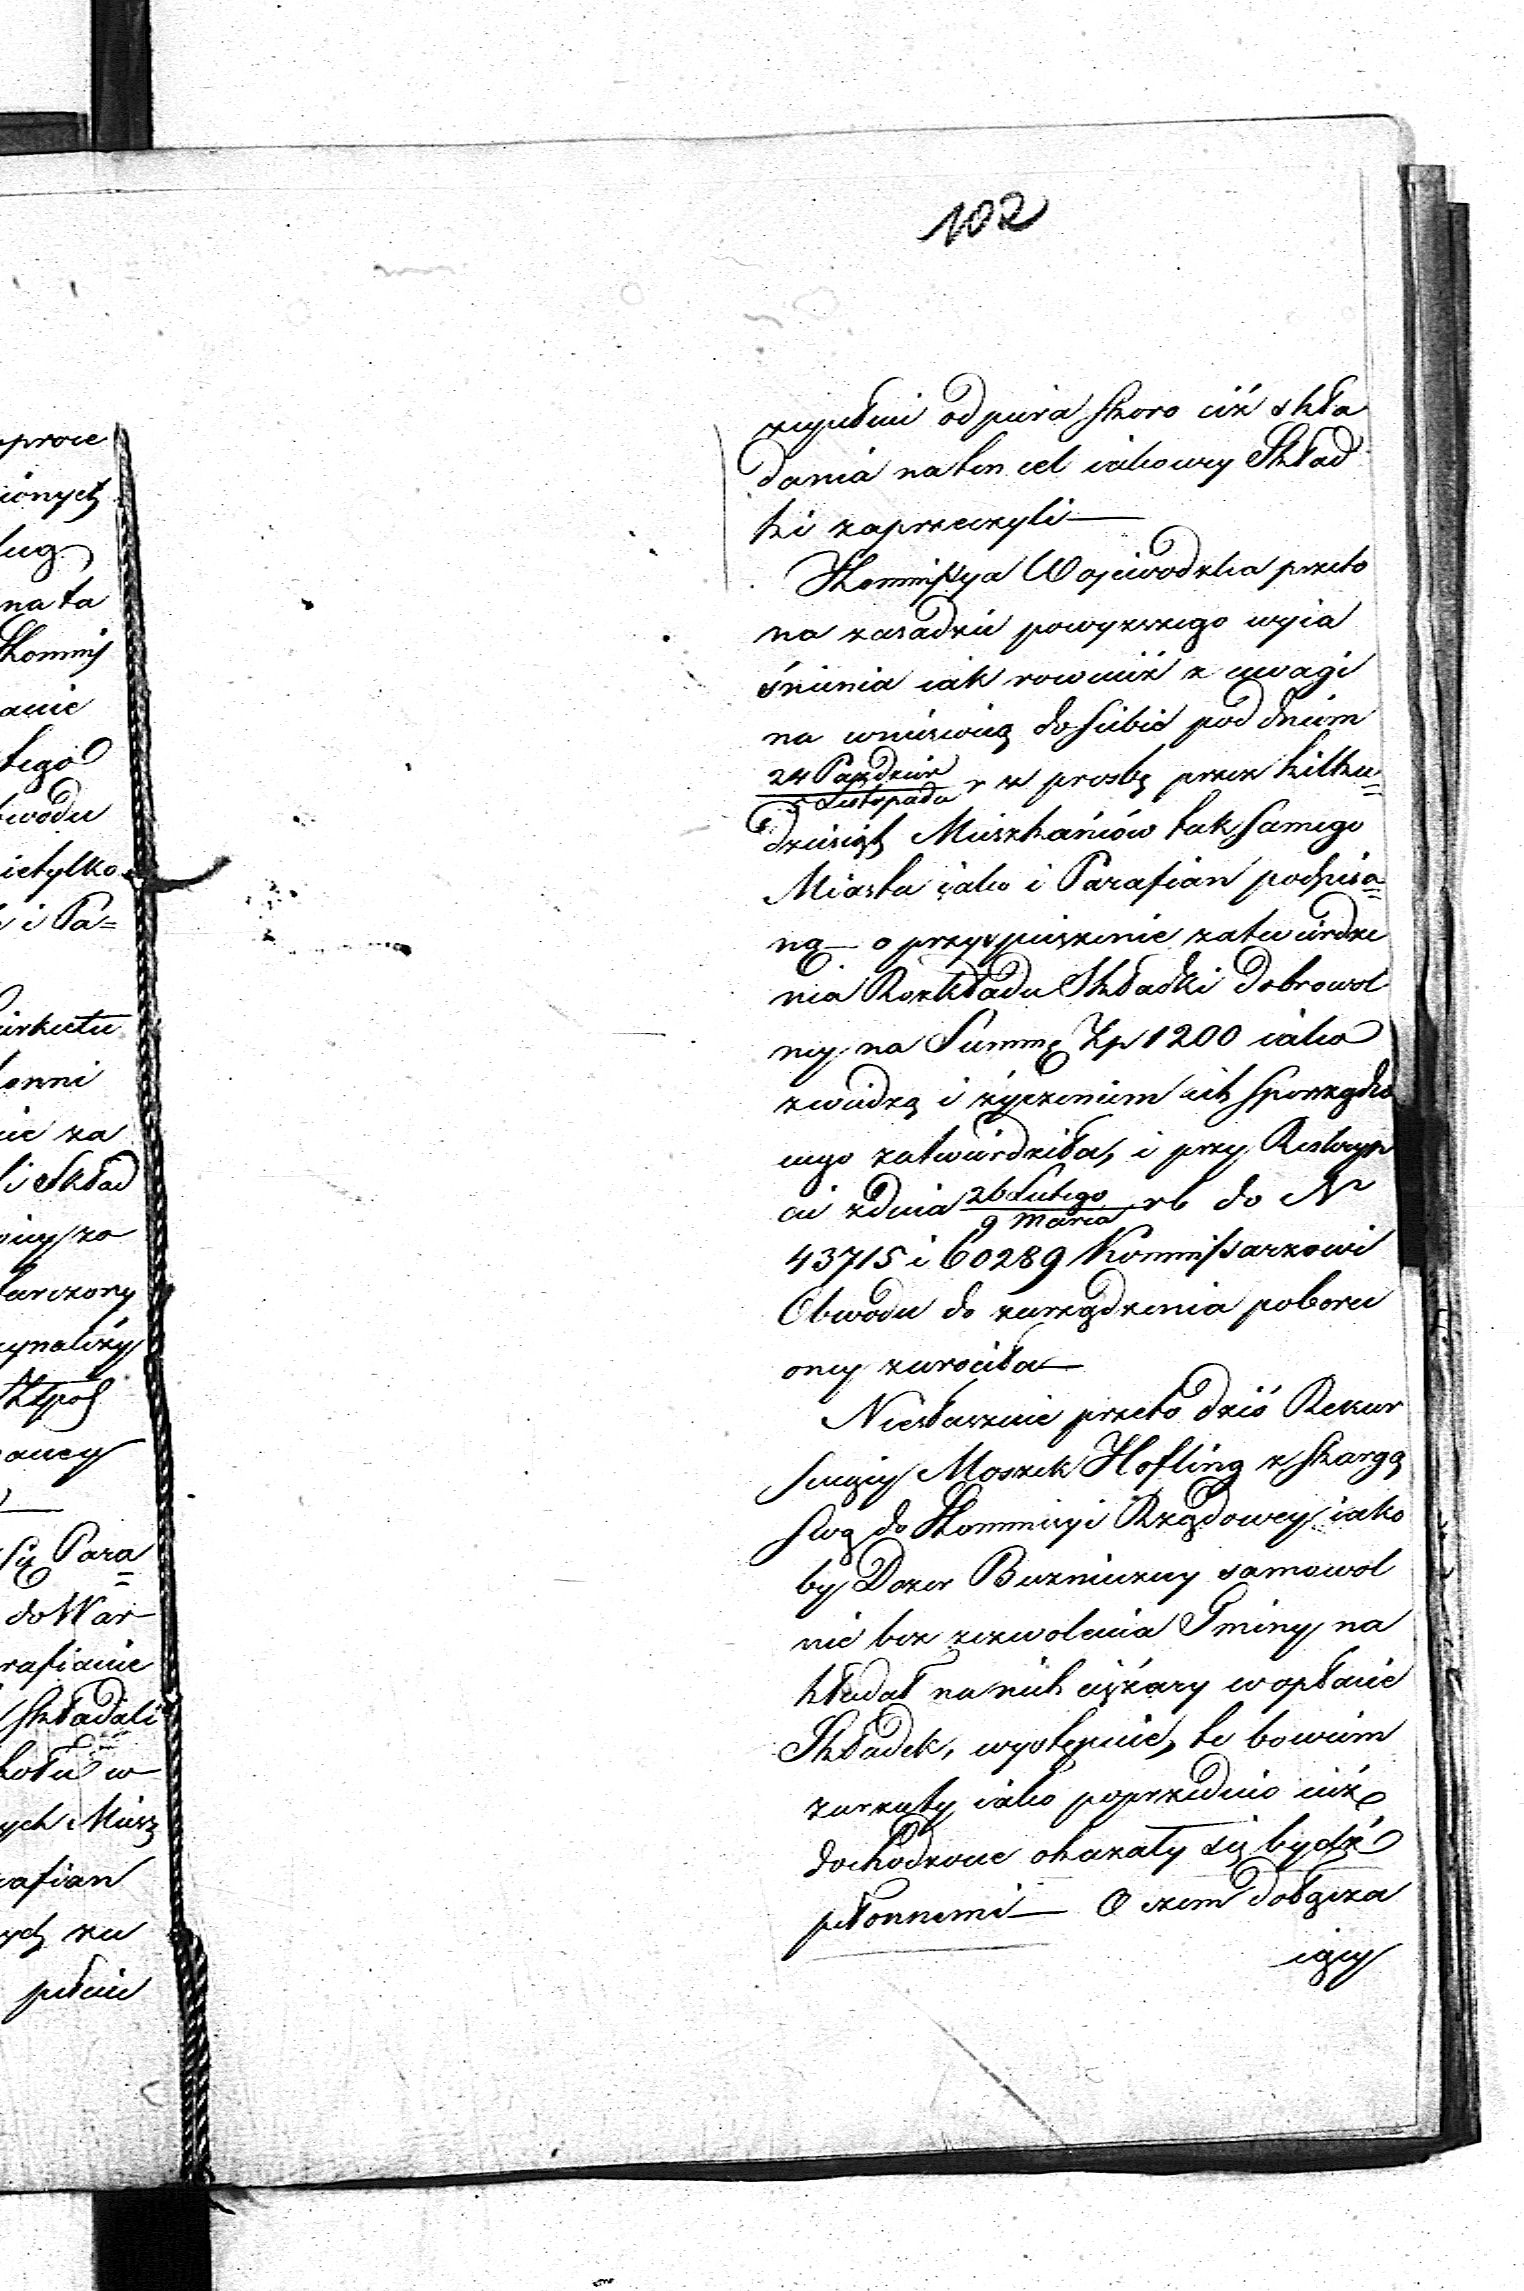 102
zupełnie odpiera skoro ciż skła
dania na ten cel iakowey Skład
ki zaprzeczyli —
Kommissya Wojewodzka przeto
na zasadzie powyzszego wyia
śnienia iak rownież z uwagi
na wniesioną do siebie pod dniem
24 Paździer
5 Listopada r z prosbę przez kilku=
dziesiąt Mieszkańców tak samego
Miasta iako i Parafian podpisa=
ną — o przyspieszenie zatwierdze
nia Rozkładu Składki dobrowol
ney na Summę Zp 1200 iako
z wiedzą i życzeniem ich sporządzo
nego zatwierdziła, i przy Reskryp
cie z dnia 26 Lutego
9 Marca rb do Nr
43715 i 60289 Kommissarzowi
Obwodu do zarządzenia poboru
oney zwrociła —
Niesłusznie przeto dziś Rekur
suiący Moszek Hofling z skargą
swą do Kommisyi Rządowey iako
by Dozor Bużniczny samowol
nie bez zezwolenia Gminy na
kładał na nich ciężary w opłacie
Składek, występuie, te bowiem
zarzuty iako poprzednio iuż
dochodzone okazały się bydź
płonnemi — O czem dołącza
iący
proce
ionych
ług
na ta
Kommis
anie
tego
bwodu
ietylko
i Pa=
nie za
i Skład
się Para=
do War
rafianie
składali
w
ych Miesz
rafian
ych za
pełnie